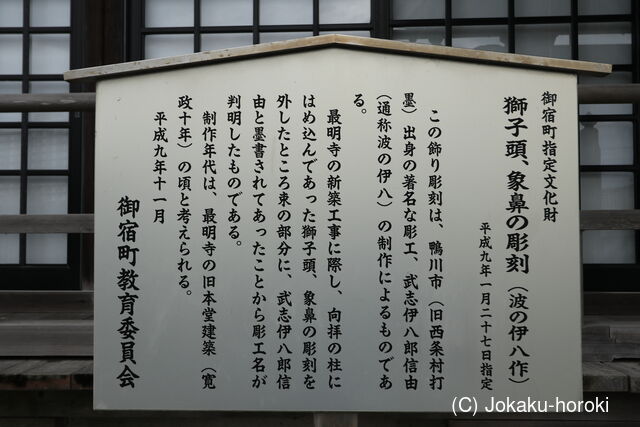 御宿町指定文化財
獅子頭、象鼻の彫刻（波の伊八作）
平成九年一月二十七日指定
この飾り彫刻は、鴨川市（旧西条村打
墨）出身の著名な彫工、武志伊八郎信由
（通称波の伊八）の制作によるものであ
る。
最明寺の新築工事に際し、向拝の柱に
はめ込んであった獅子頭、象鼻の彫刻を
外したところ束の部分に、武志伊八郎信
由と墨書されてあったことから彫工名が
判明したものである。
制作年代は、最明寺の旧本堂建築（寛
政十年）の頃と考えられる。
平成九年十一月
御宿町教育委員会
(C) Jokaku-horoki